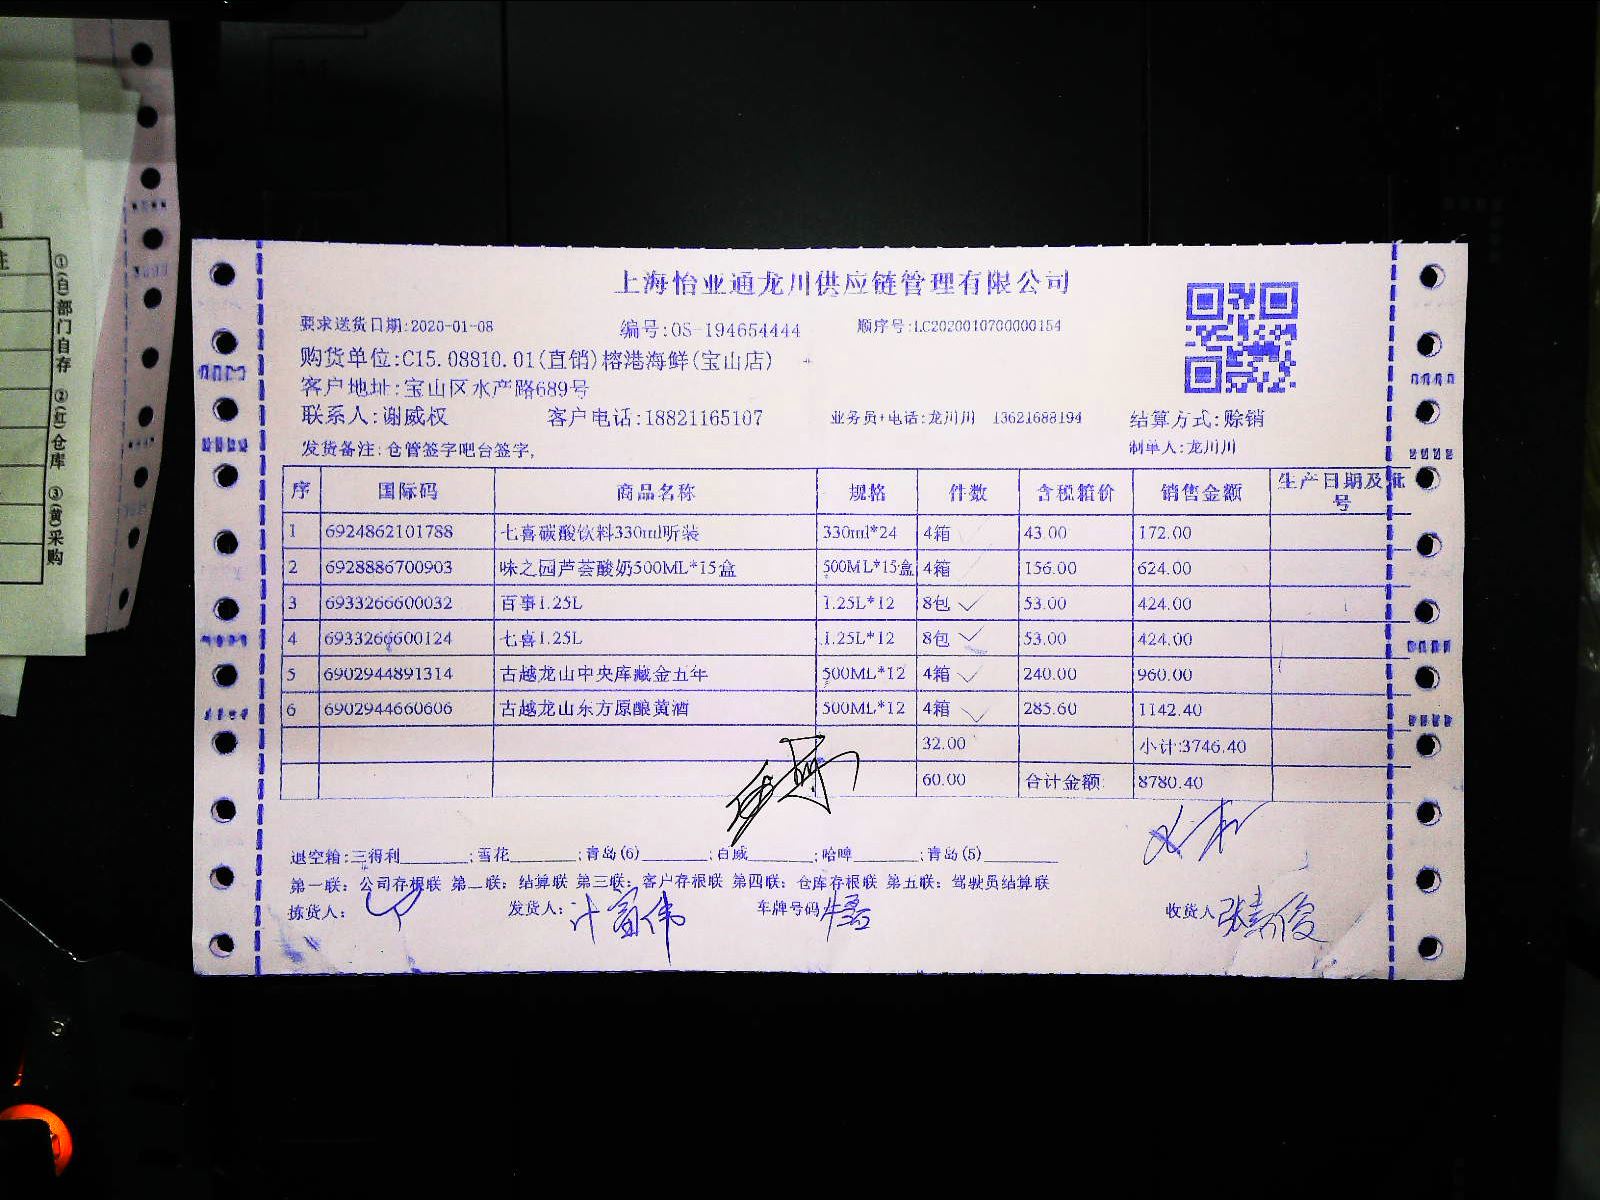 上海怡亚通龙川供应链管理有限公司
要求送货日期:2020-01-08 编号:OS-194654444 顺序号:LC2020010700000154
购货单位:C15.08810.01(直销)榕港海鲜(宝山店)
客户地址:宝山区水产路689号
联系人:谢威权 客户电话:18821165107 业务员+电话:龙川川 13621688194 结算方式:赊销
发货备注:仓管签字吧台签字, 制单人:龙川川
序 国际码 商品名称 规格 件数 含税箱价 销售金额 生产日期及批号
1 6924862101788 七喜碳酸饮料330ml听装 330ml*24 4箱 43.00 172.00
2 6928886700903 味之园芦荟酸奶500ML*15盒 500ML*15盒 4箱 156.00 624.00
3 6933266600032 百事1.25L 1.25L*12 8包 53.00 424.00
4 6933266600124 七喜1.25L 1.25L*12 8包 53.00 424.00
5 6902944891314 古越龙山中央库藏金五年 500ML*12 4箱 240.00 960.00
6 6902944660606 古越龙山东方原酿黄酒 500ML*12 4箱 285.60 1142.40
32.00 小计:3746.40
60.00 合计金额 8780.40
退空箱:三得利________;雪花________;青岛(6)________;百威________;哈啤________;青岛(5)________
第一联：公司存根联 第二联：结算联 第三联：客户存根联 第四联：仓库存根联 第五联：驾驶员结算联
拣货人: 发货人: 车牌号码 收货人
①(白)部门自存 ②(红)仓库 ③(黄)采购